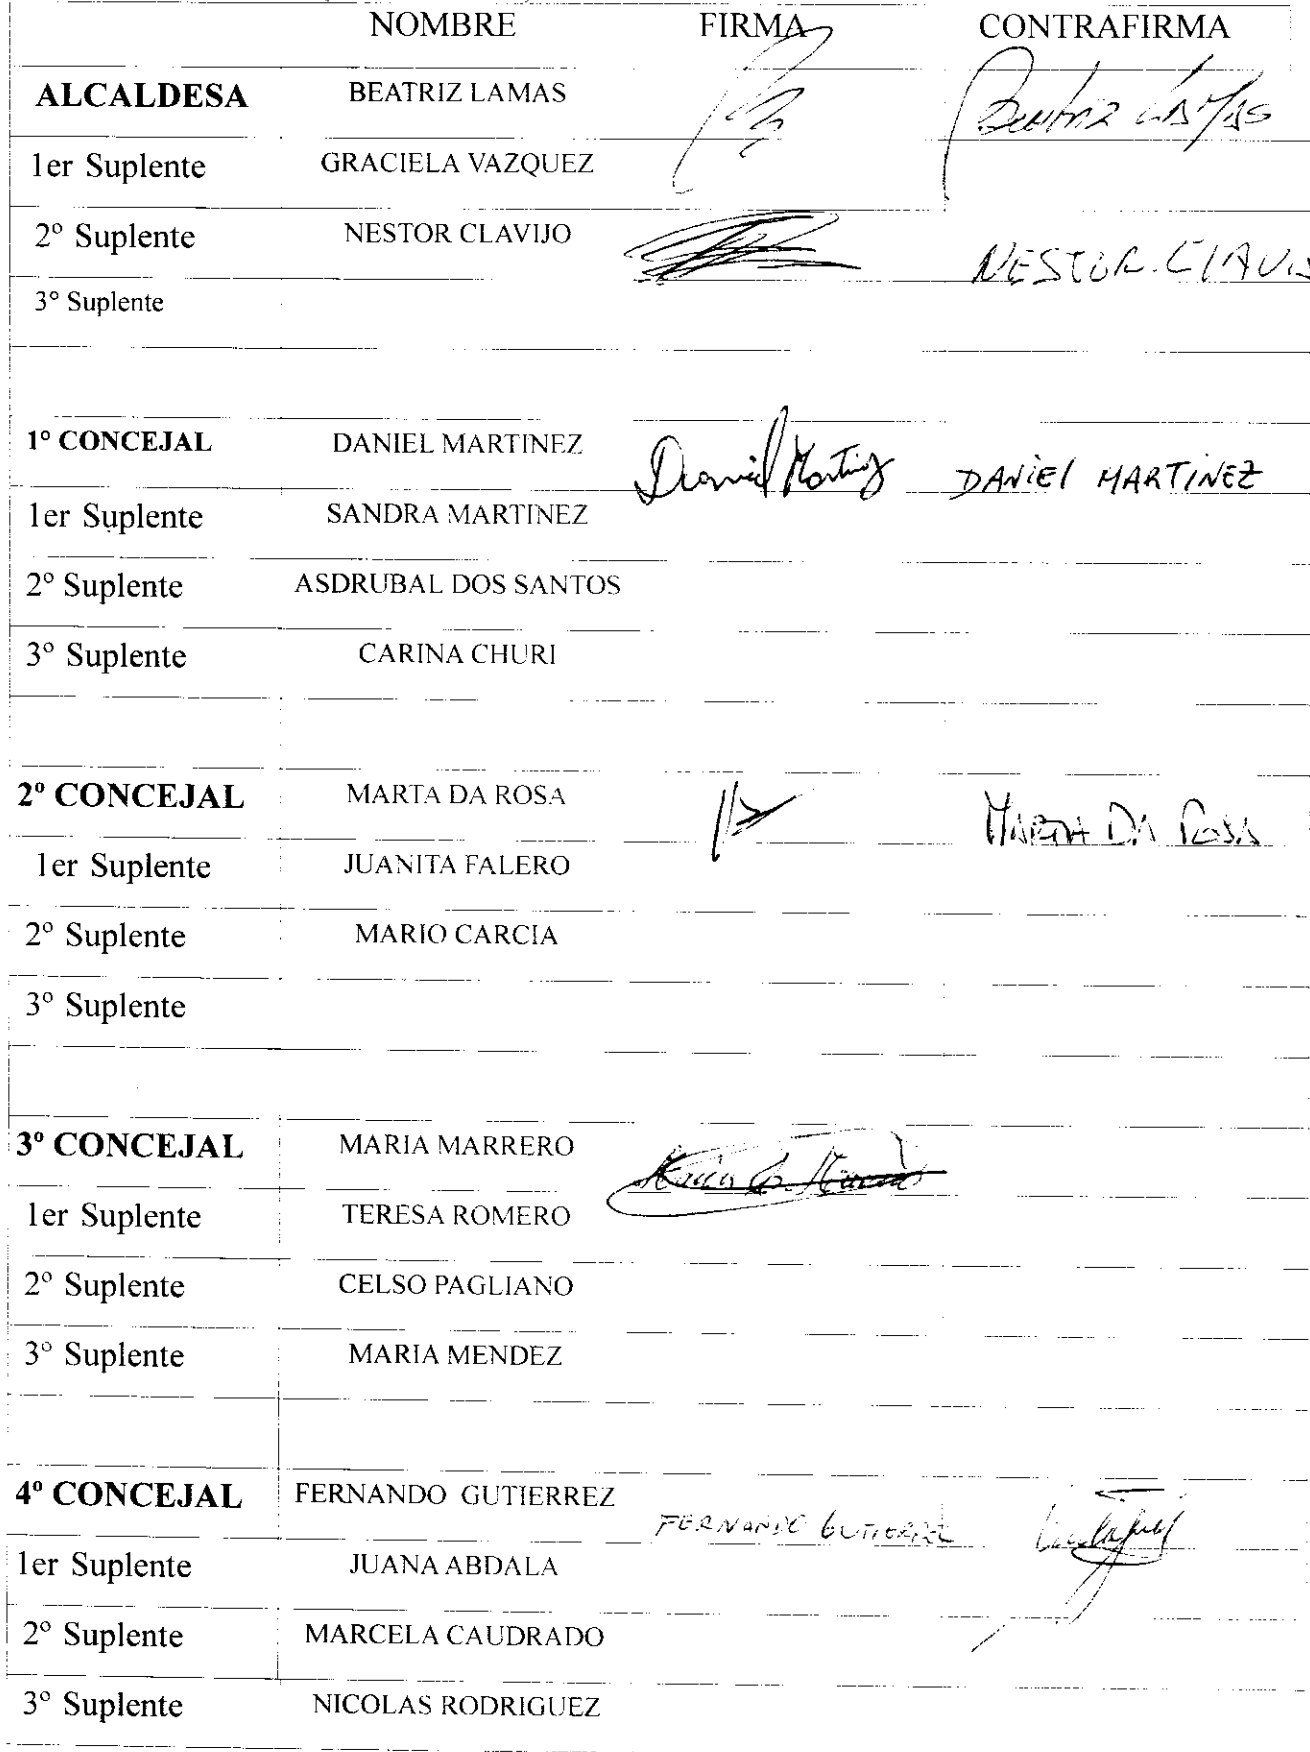 NOMBRE FIRMA CONTRAFIRMA
ALCALDESA BEATRIZ LAMAS Beatriz LAMAS
1er Suplente GRACIELA VAZQUEZ
2º Suplente NESTOR CLAVIJO NESTOR. CLAVIJ
3º Suplente
1º CONCEJAL DANIEL MARTINEZ Daniel Martinez DANIEL MARTINEZ
1er Suplente SANDRA MARTINEZ
2º Suplente ASDRUBAL DOS SANTOS
3º Suplente CARINA CHURI
2º CONCEJAL MARTA DA ROSA MARTA DA ROSA
1er Suplente JUANITA FALERO
2º Suplente MARIO CARCIA
3º Suplente
3º CONCEJAL MARIA MARRERO
1er Suplente TERESA ROMERO
2º Suplente CELSO PAGLIANO
3º Suplente MARIA MENDEZ
4º CONCEJAL FERNANDO GUTIERREZ FERNANDO GUTIERREZ
1er Suplente JUANA ABDALA
2º Suplente MARCELA CAUDRADO
3º Suplente NICOLAS RODRIGUEZ